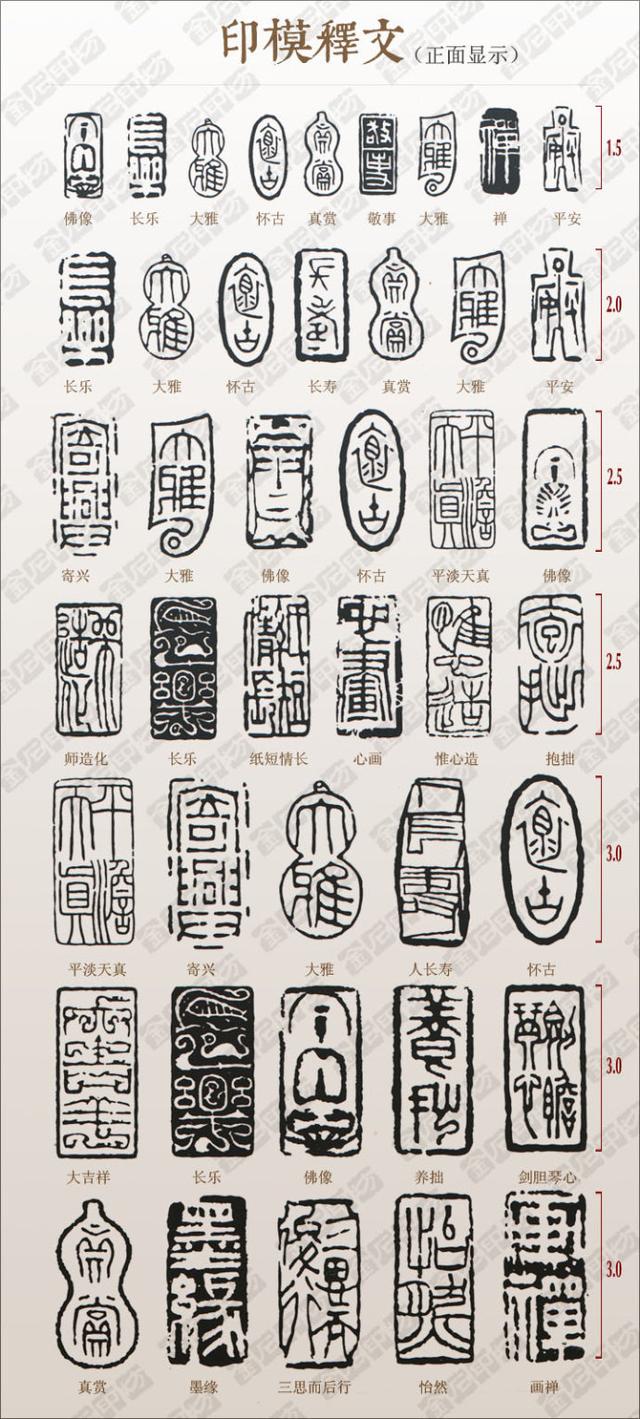 印模釋文（正面显示）
佛像 长乐 大雅 怀古 真赏 敬事 大雅 禅 平安 1.5
长乐 大雅 怀古 长寿 真赏 大雅 平安 2.0
寄兴 大雅 佛像 怀古 平淡天真 佛像 2.5
师造化 长乐 纸短情长 心画 惟心造 抱拙 2.5
平淡天真 寄兴 大雅 人长寿 怀古 3.0
大吉祥 长乐 佛像 养拙 剑胆琴心 3.0
真赏 墨缘 三思而后行 怡然 画禅 3.0